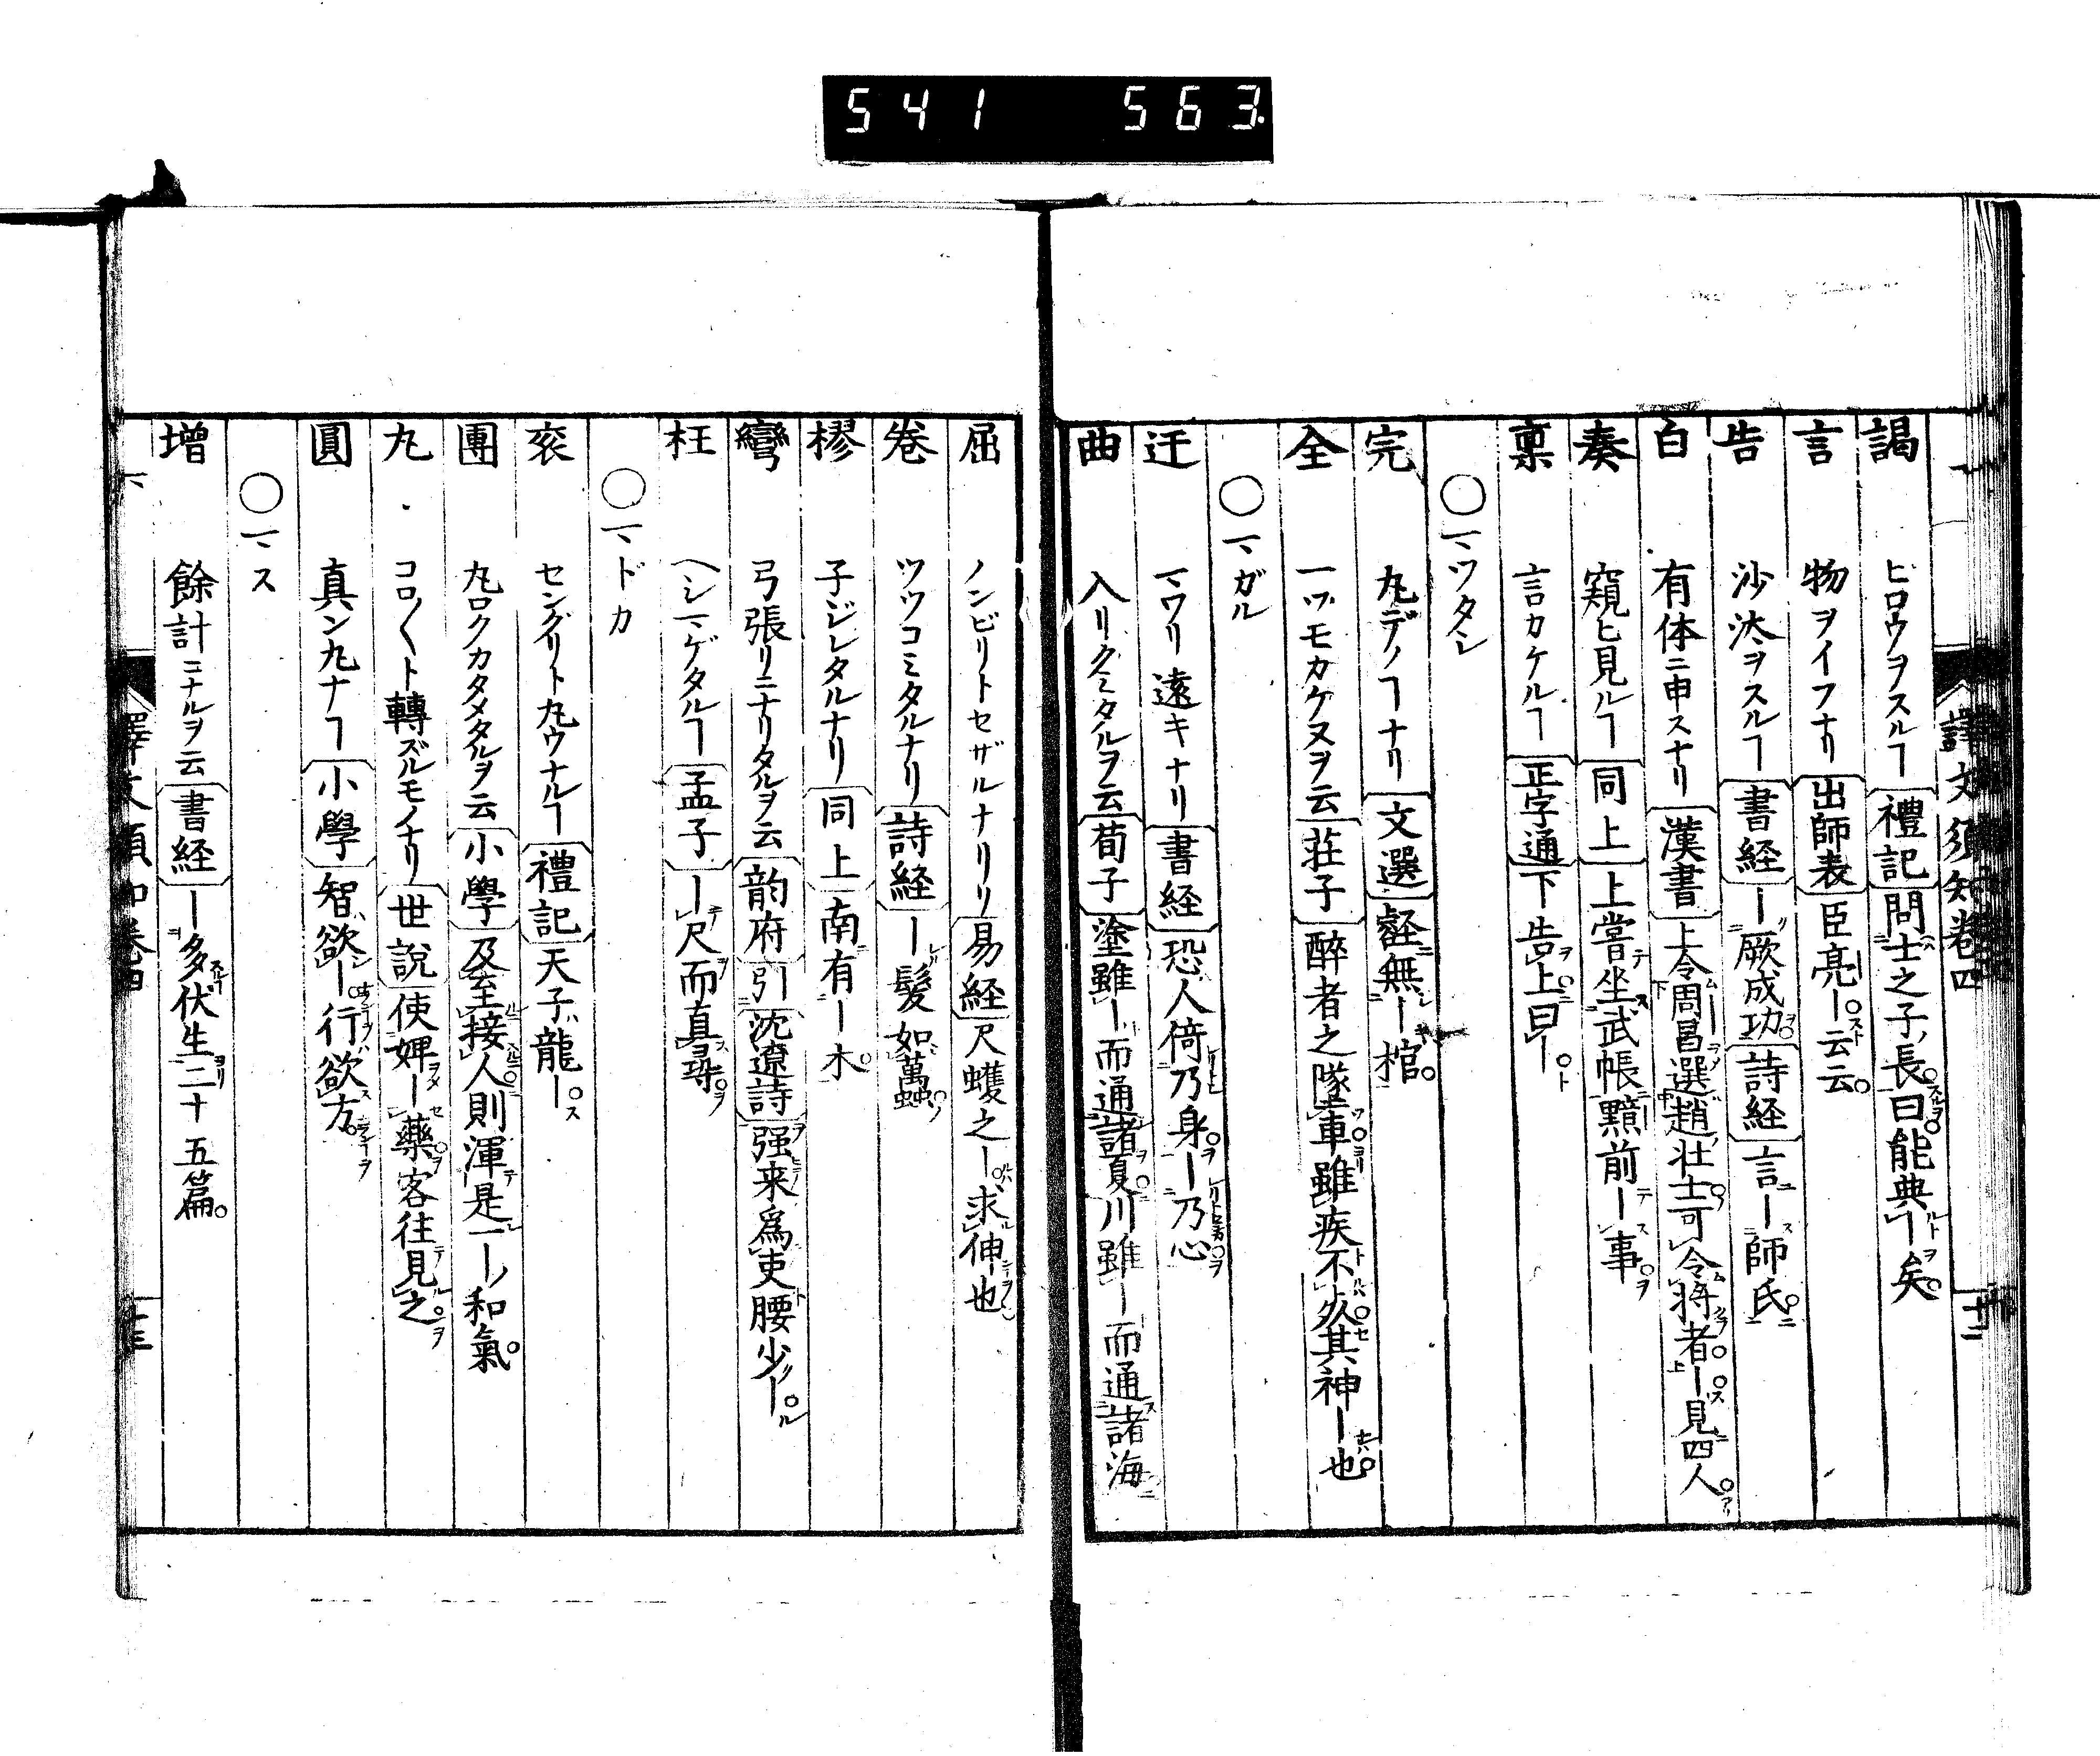 541 563
譯文須知卷四
十二
謁 ヒロウヲスルヿ 禮記 問士之子長曰能典ー矣
言 物ヲイフナリ 出師表 臣亮ー云云
告 沙汰ヲスルヿ 書経 ー厥成功 詩経 言ー師氏
白 有体ニ申スナリ 漢書 上令周昌選趙壮士可令将者ー見四人
奏 窺ヒ見ルヿ 同上 上嘗坐武帳黯前ー事
稟 言カケルヿ 正字通 下告上曰ー
○マツタシ
完 丸デノヿナリ 文選 無ー棺
全 一ツモカケヌヲ云 荘子 醉者之墜車雖疾不死其神ー也
○マガル
迂 マワリ遠キナリ 書経 恐人倚乃身ー乃心
曲 入リクミタルヲ云 荀子 塗雖ー而通諸夏川雖ー而通諸海
屈 ノンビリトセザルナリ 易経 尺蠖之ー求伸也
卷 ツツコミタルナリ 詩経 ー髪如蠆
樛 子ジレタルナリ 同上 南有ー木
彎 弓張リニナリタルヲ云 韵府 引 沈遼詩 强来爲吏腰少ー
枉 ヘシマゲタルヿ 孟子 ー尺而直尋
○マドカ
袞 センクリト丸ウナルヿ 禮記 天子龍ー
團 丸ロクカタメタルヲ云 小學 及至接人則渾是一ー和氣
丸 コロ〱ト轉ズルモノナリ 世説 使婢ー藥客往見之
圓 真ン丸ナヿ 小學 智欲ー行欲方
○マス
増 餘計ニナルヲ云 書経 ー多伏生二十五篇
譯文須知卷四
十三